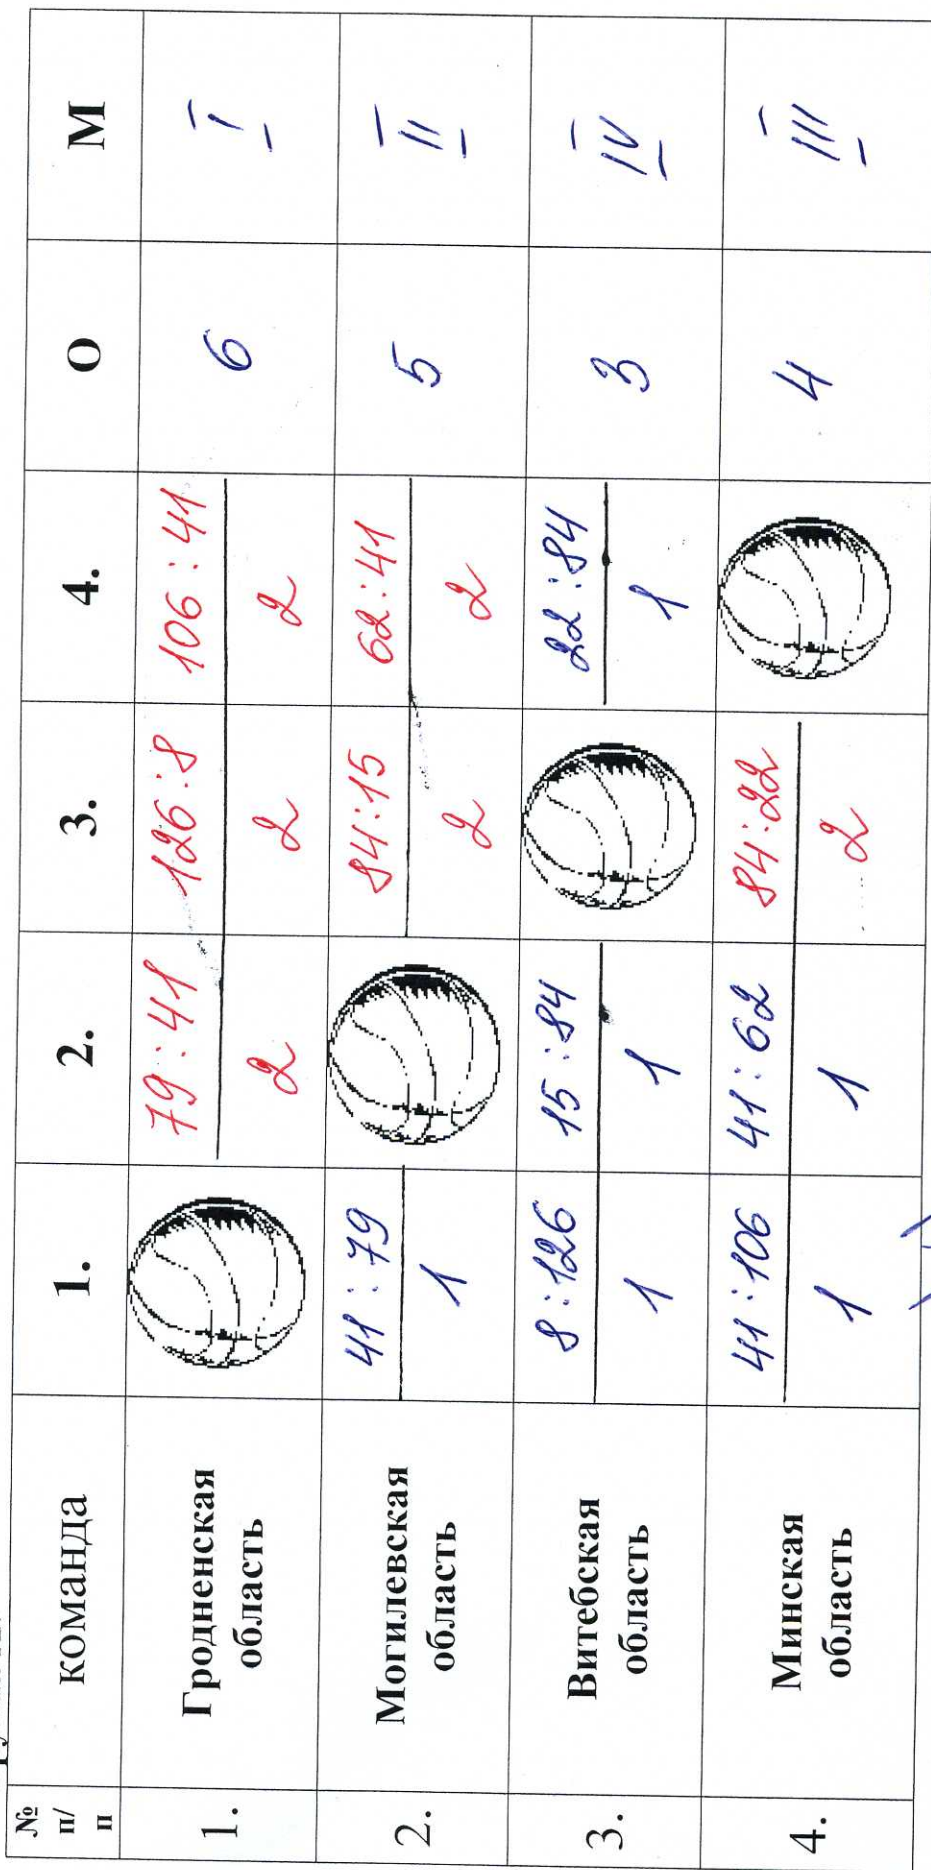 № п/п КОМАНДА 1. 2. 3. 4. О М
1. Гродненская область 79:41 2 126:8 2 106:41 2 6 I
2. Могилевская область 41:79 1 84:15 2 62:41 2 5 II
3. Витебская область 8:126 1 15:84 1 22:84 1 3 IV
4. Минская область 41:106 1 41:62 1 84:22 2 4 III